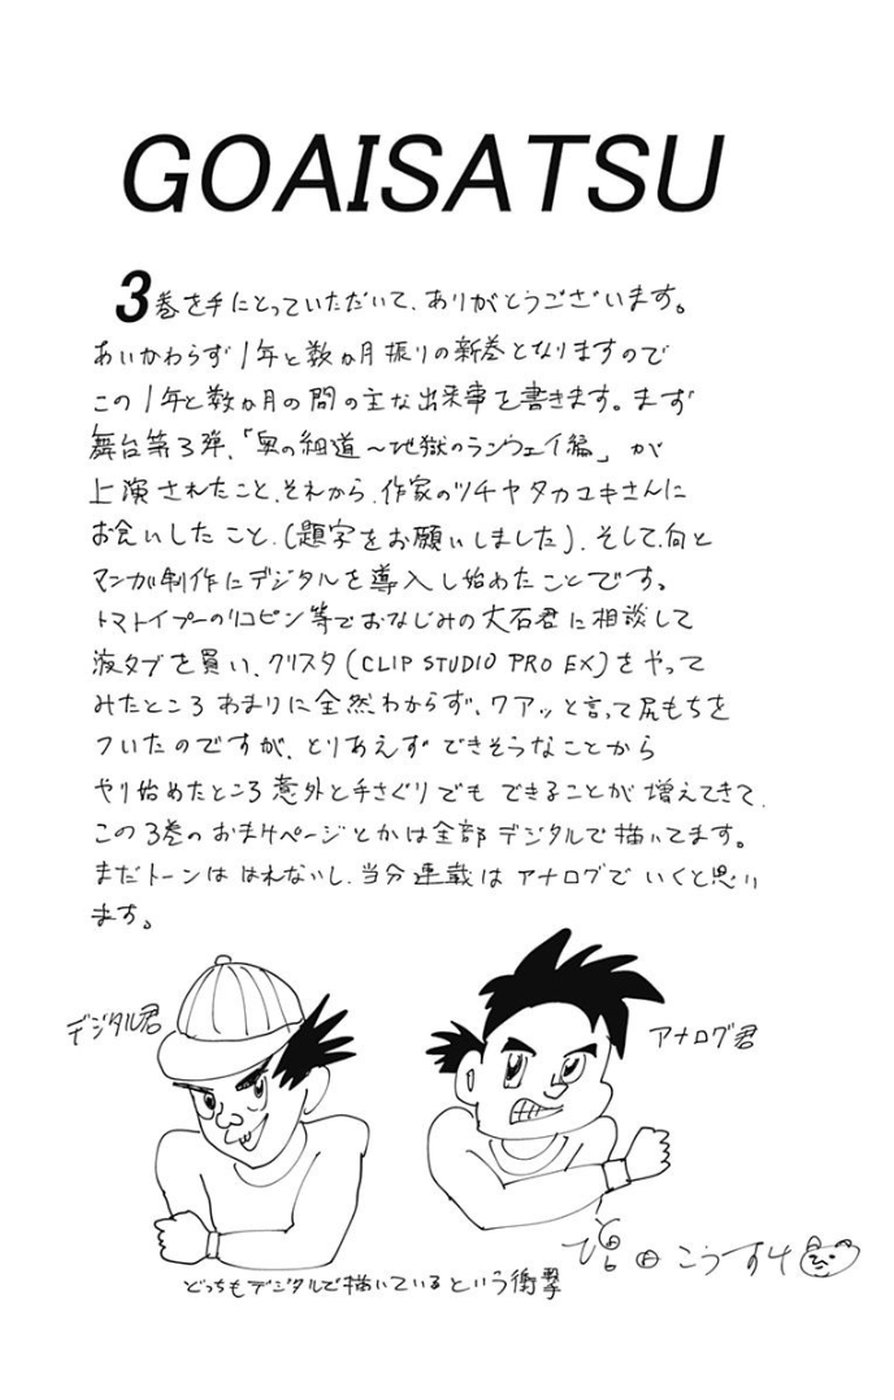 GOAISATSU
3巻を手にとっていただいて、ありがとうございます。
あいかわらず1年と数か月振りの新巻となりますので
この1年と数か月の間の主な出来事を書きます。まず
舞台第3弾、「奥の細道〜地獄のランウェイ編」が
上演されたこと、それから、作家のツチヤタカユキさんに
お会いしたこと、(題字をお願いしました)、そして、何と
マンガ制作にデジタルを導入し始めたことです。
トマトイプーのリコピン等でおなじみの大石君に相談して
液タブを買い、クリスタ(CLIP STUDIO PRO EX)をやって
みたところあまりに全然わからず、ワアッと言って尻もちを
ついたのですが、とりあえずできそうなことから
やり始めたところ意外と手さぐりでもできることが増えてきて、
この3巻のおまけページとかは全部デジタルで描いてます。
まだトーンははれないし、当分連載はアナログでいくと思い
ます。
デジタル君
アナログ君
こうすけ
どっちもデジタルで描いているという衝撃